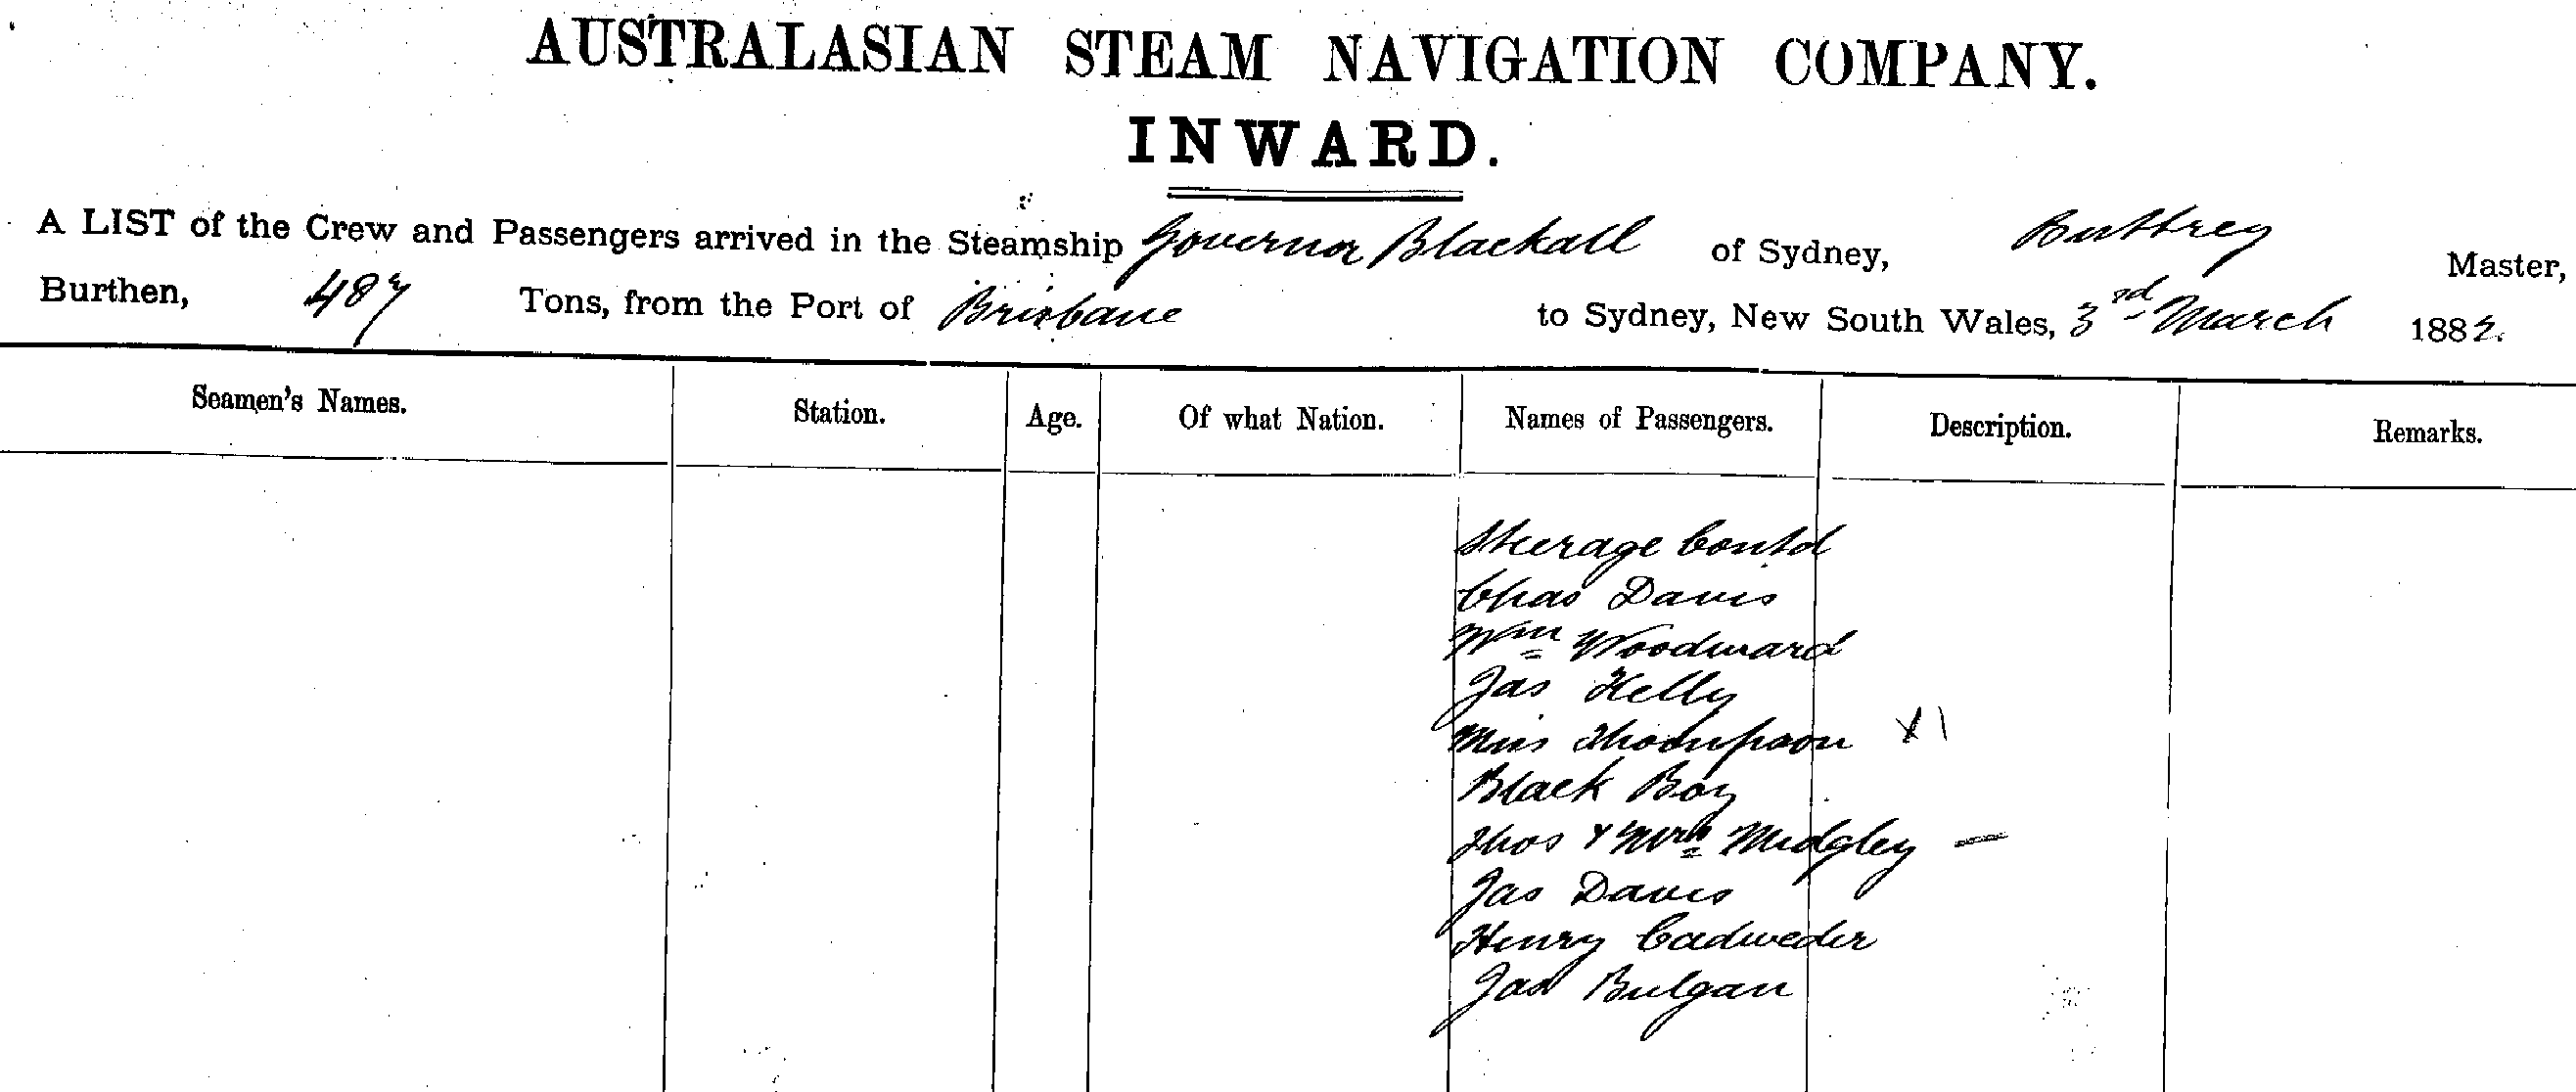 AUSTRALASIAN STEAM NAVIGATION COMPANY.
INWARD.
A LIST of the Crew and Passengers arrived in the Steamship Governor Blackall of Sydney, Buttrey Master,
Burthen, 487 Tons, from the Port of Brisbane to Sydney, New South Wales, 3rd March 1882.
Seamen's Names. Station. Age. Of what Nation. Names of Passengers. Description. Remarks.
Steerage Contd
Chas Davis
Wm Woodward
Jas Kelly
Miss Thompson X1
Black Boy
Thos & Mrs Midgley —
Jas Davis
Henry Cadweder
Jas Bulgan